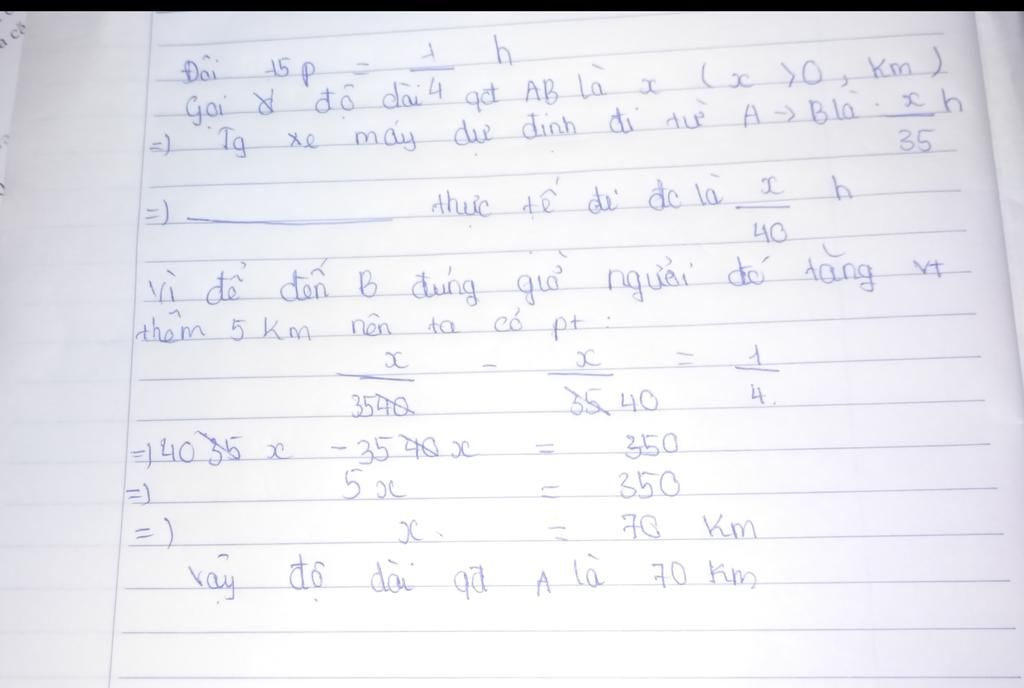 Đổi 15p = 1/4 h
Gọi độ dài qđ AB là x (x >0, Km)
=) Tg xe máy dự định đi từ A -> B là : x/35 h
=) ________ thực tế đi đc là x/40 h
Vì để đến B đúng giờ người đó tăng vt
thêm 5 Km nên ta có pt :
x/35 - x/40 = 1/4
=) 40x - 35x = 350
=) 5x = 350
=) x = 70 Km
Vậy độ dài qđ A là 70 Km